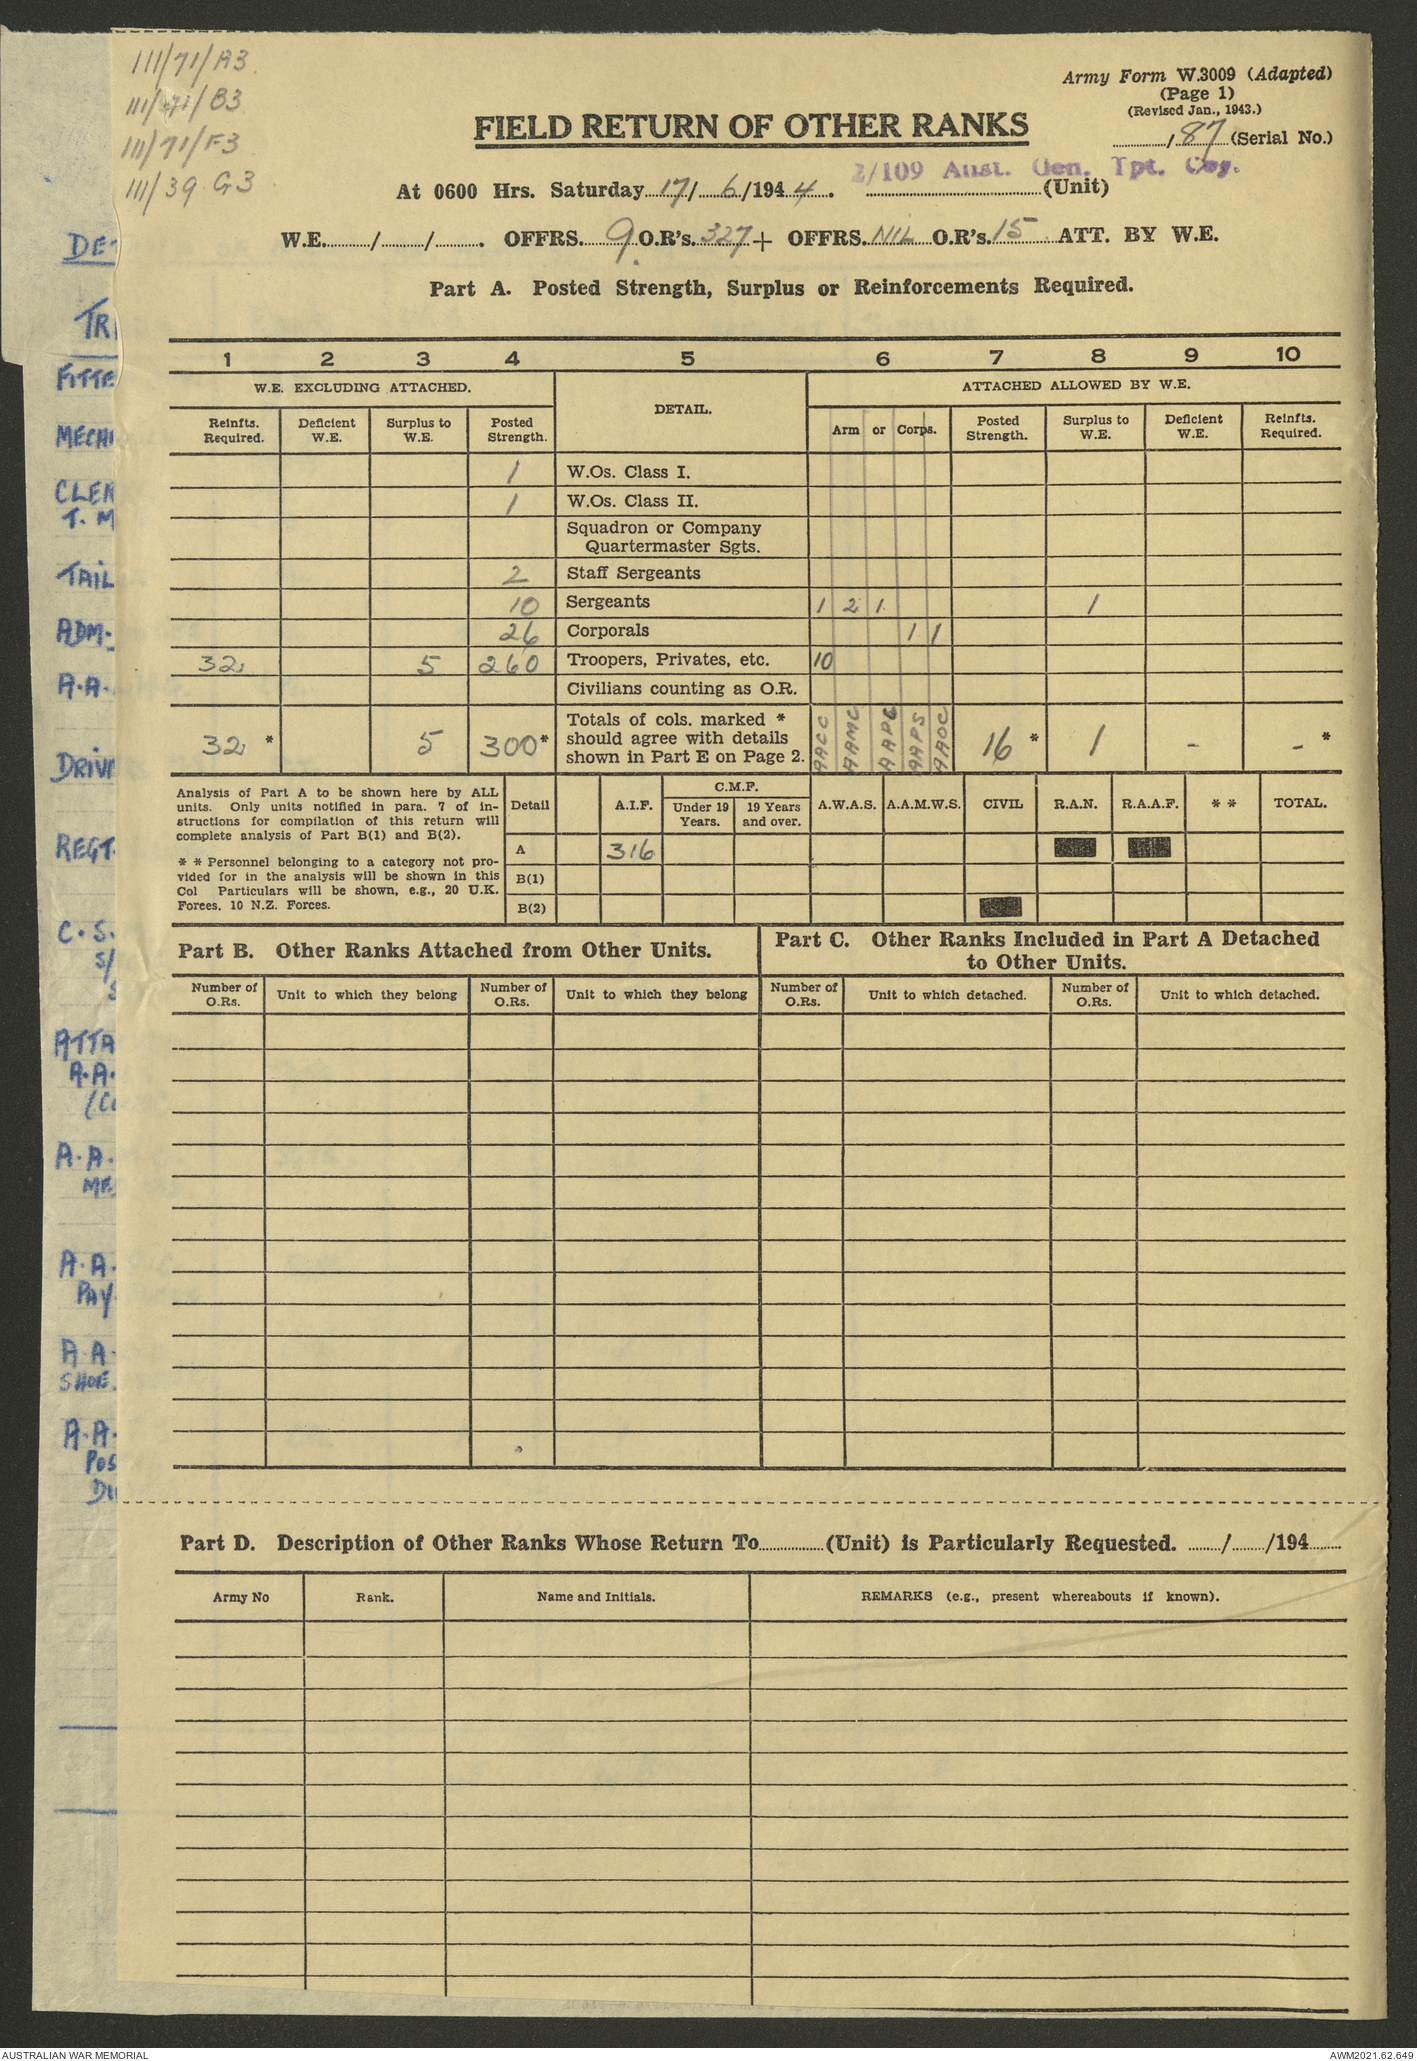 111/71/A3
111/71/B3
111/71/F3
111/39 G3
Army Form W.3009 (Adapted)
(Page 1)
(Revised Jan., 1943.)
FIELD RETURN OF OTHER RANKS
........../ 87 (Serial No.)
2/109 Aust. Gen. Tpt. Coy.
At 0600 Hrs. Saturday 17/ 6/194 4. (Unit)
W.E. / / . OFFRS. 9 O.R's. 327 + OFFRS. NIL O.R's. 15 ATT. BY W.E.
Part A. Posted Strength, Surplus or Reinforcements Required.
1 2 3 4 5 6 7 8 9 10
W.E. EXCLUDING ATTACHED. DETAIL. ATTACHED ALLOWED BY W.E.
Reinfts. Required. Deficient W.E. Surplus to W.E. Posted Strength. Arm or Corps. Posted Strength. Surplus to W.E. Deficient W.E. Reinfts. Required.
1 W.Os. Class I.
1 W.Os. Class II.
Squadron or Company
Quartermaster Sgts.
2 Staff Sergeants
10 Sergeants 1 2 1 1
26 Corporals 1 1
32 5 260 Troopers, Privates, etc. 10
Civilians counting as O.R.
32 * 5 300 * Totals of cols. marked * should agree with details shown in Part E on Page 2. AACC AAMC AAPC AAPS AAOC 16 * 1 - - *
Analysis of Part A to be shown here by ALL
units. Only units notified in para. 7 of in-
structions for compilation of this return will
complete analysis of Part B(1) and B(2).
* * Personnel belonging to a category not pro-
vided for in the analysis will be shown in this
Col Particulars will be shown, e.g., 20 U.K.
Forces, 10 N.Z. Forces.
Detail A.I.F. C.M.F. Under 19 Years. 19 Years and over. A.W.A.S. A.A.M.W.S. CIVIL R.A.N. R.A.A.F. * * TOTAL.
A 316
B(1)
B(2)
Part B. Other Ranks Attached from Other Units.
Part C. Other Ranks Included in Part A Detached
to Other Units.
Number of O.Rs. Unit to which they belong Number of O.Rs. Unit to which they belong Number of O.Rs. Unit to which detached. Number of O.Rs. Unit to which detached.
Part D. Description of Other Ranks Whose Return To (Unit) is Particularly Requested. / /194
Army No Rank. Name and Initials. REMARKS (e.g., present whereabouts if known).
DET
TR
FITTE
MECH
CLER
T. M
TAIL
ADM.
A.A.
DRIV
REGT.
C.S.
S/
S
ATTA
A.A.
(Co
A.A.
ME
A.A.
PAY
A.A.
SHOE
A.A.
POS
DU
AUSTRALIAN WAR MEMORIAL
AWM2021.62.649